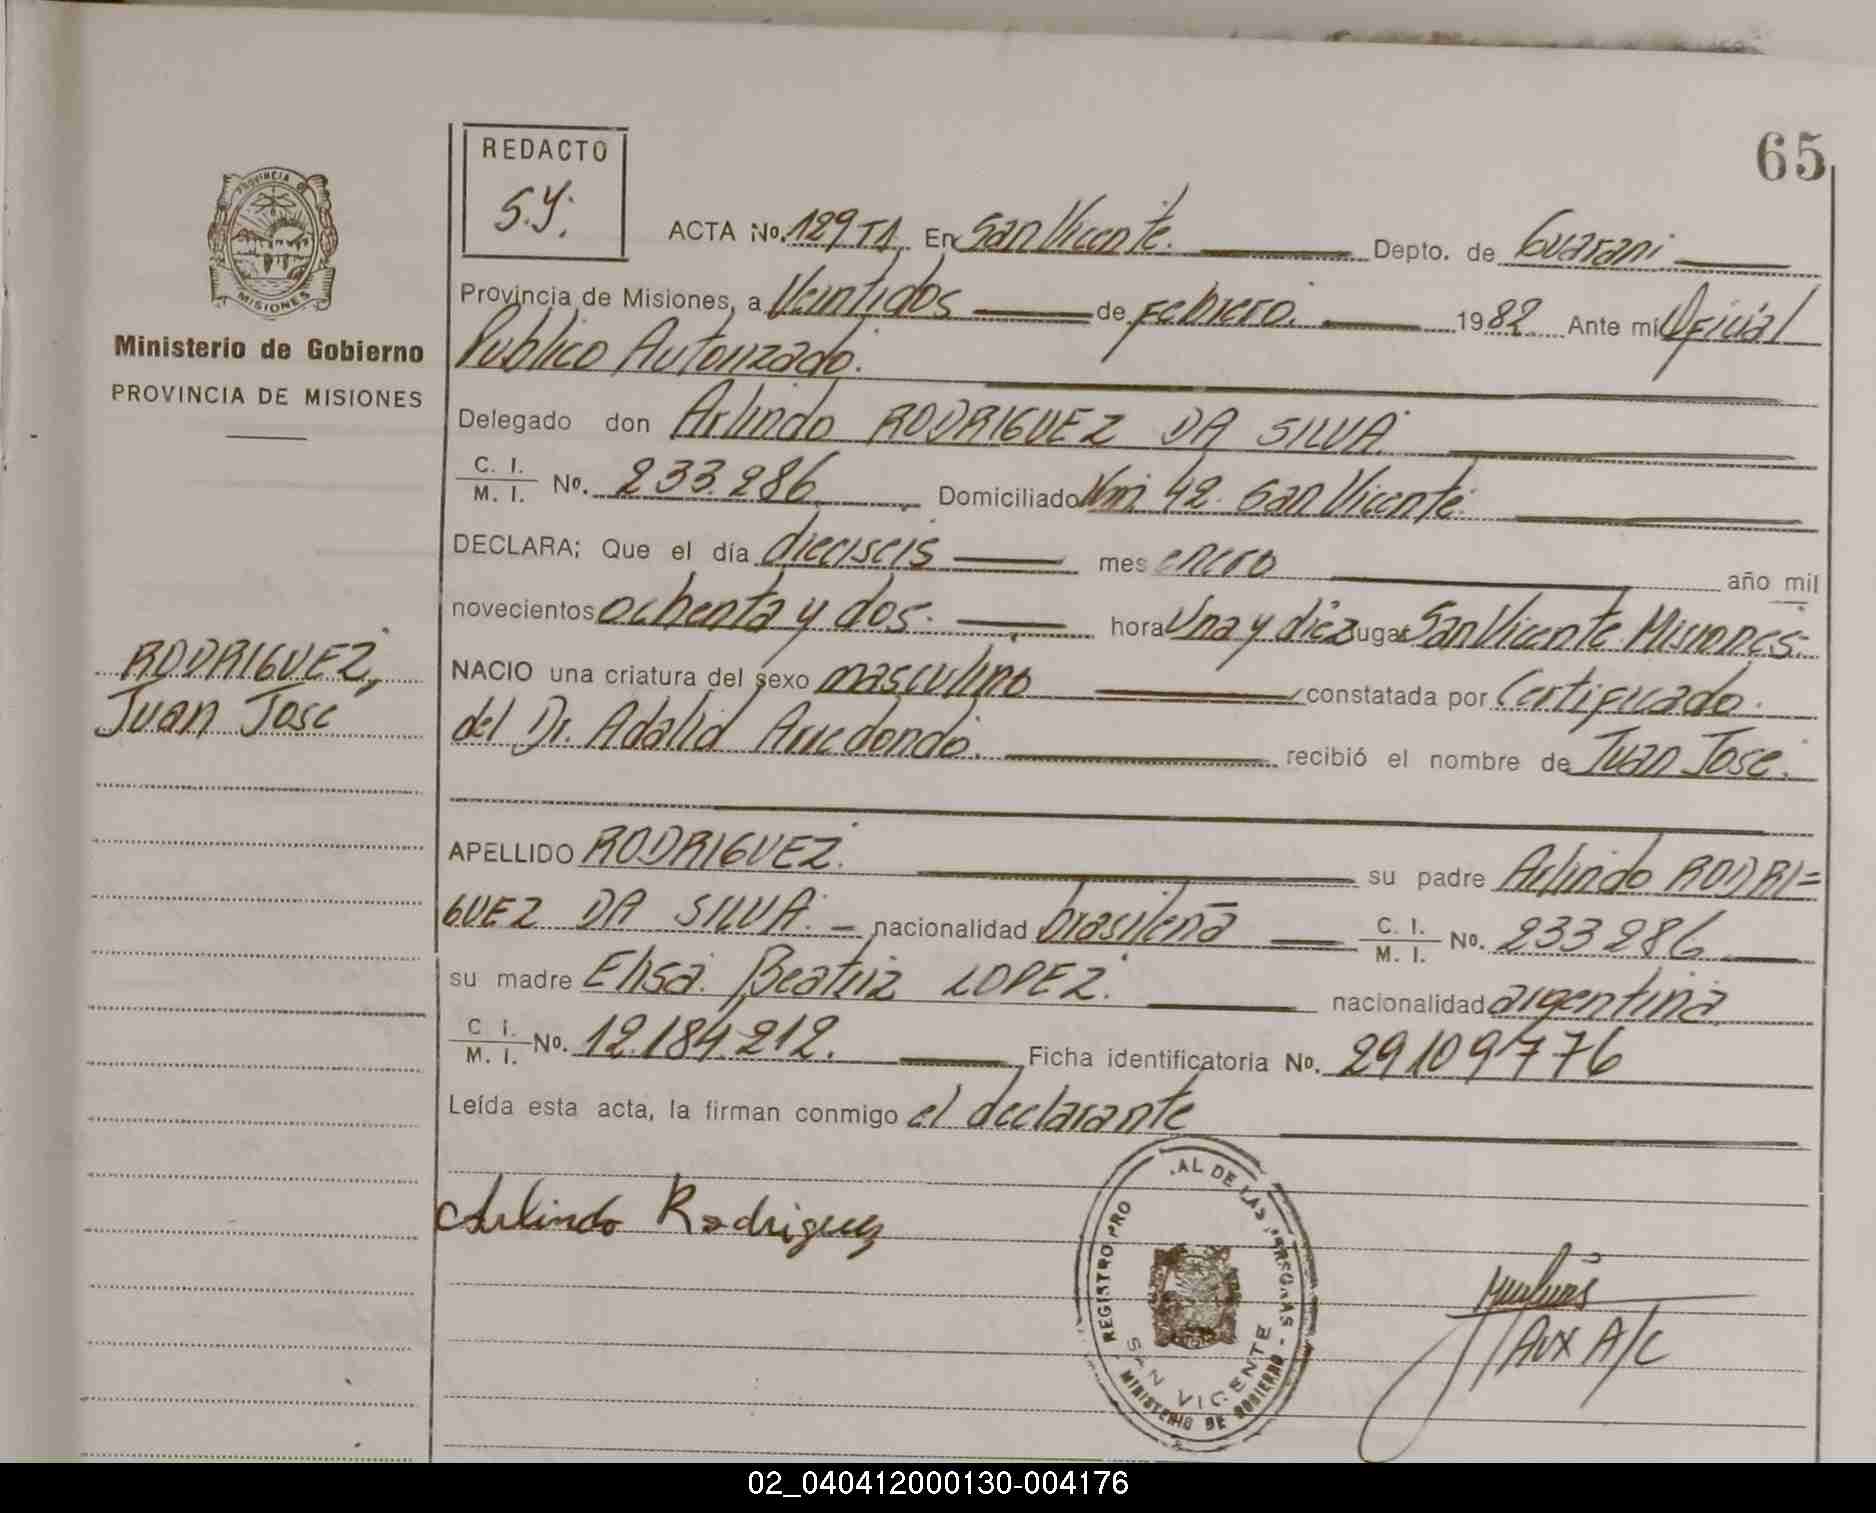 65
REDACTO
S.Y.
PROVINCIA DE
MISIONES
Ministerio de Gobierno
PROVINCIA DE MISIONES
RODRIGUEZ,
Juan José
ACTA No. 129 T1 En San Vicente. Depto. de Guarani
Provincia de Misiones, a Veintidos de Febrero. 1982 Ante mi Oficial
Publico Autorizado.
Delegado don Arlindo RODRIGUEZ DA SILVA
C. I. / M. I. No. 233.286 Domiciliado Km 42. San Vicente.
DECLARA; Que el día dieciseis mes enero año mil
novecientos ochenta y dos. hora Una y diez lugar San Vicente Misiones.
NACIO una criatura del sexo masculino constatada por Certificado.
del Dr. Adalid Arredondo. recibió el nombre de Juan José.
APELLIDO RODRIGUEZ. su padre Arlindo RODRI=
GUEZ DA SILVA. nacionalidad brasileña C. I. / M. I. No. 233 286
su madre Elisa Beatriz LOPEZ. nacionalidad argentina
C. I. / M. I. No. 12.184.212. Ficha identificatoria No. 29109776
Leída esta acta, la firman conmigo el declarante
Arlindo Rodriguez
REGISTRO PRO AL DE LAS PERSONAS - MINISTERIO DE GOBIERNO
SAN VICENTE
Aux A/C
02_040412000130-004176